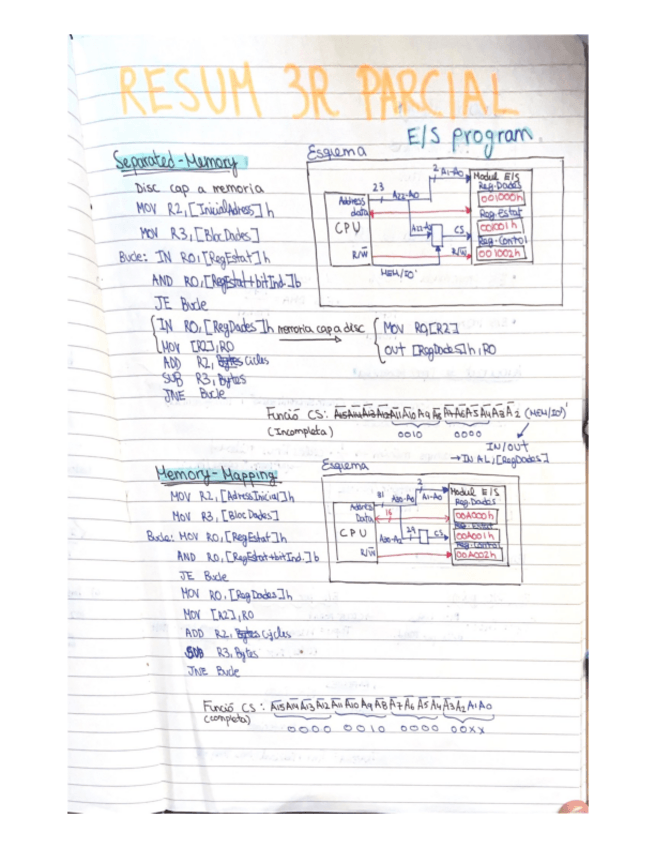 RESUM 3R PARCIAL
E/S program.
Separated-Memory
Disc cap a memoria
MOV R2, [InicialAdress]h
MOV R3, [BlocDades]
Bucle: IN R0, [RegEstat]h
AND R0, [RegEstat+bitInd.]b
JE Bucle
IN R0, [RegDades]h memoria cap a disc
MOV [R2], R0
ADD R2, Cicles
SUB R3, Bytes
JNE Bucle
MOV R0, [R2]
OUT [RegDades]h, R0
Esquema
Address
data
CPU
R/W̅
23
A22-A0
2 A1-A0
CS
R/W̅
MEM/IO'
Modul E/S
Reg.Dades
001000h
Reg.Estat
001001h
Reg.Control
001002h
Funció CS:
(Incompleta)
0010 0000
(MEM/IO')'
IN/OUT
→ IN AL, [RegDades]
Memory-Mapping
MOV R2, [AdressInicial]h
MOV R3, [BlocDades]
Bucle: MOV R0, [RegEstat]h
AND R0, [RegEstat+bitInd.]b
JE Bucle
MOV R0, [RegDades]h
MOV [R2], R0
ADD R2, Cicles
SUB R3, Bytes
JNE Bucle
Esquema
Address
Data
CPU
R/W̅
16
A1-A0
29
CS
Modul E/S
Reg.Dades
00A000h
Reg.Estat
00A001h
Reg.Control
00A002h
Funció CS:
(completa)
0000 0010 0000 00XX